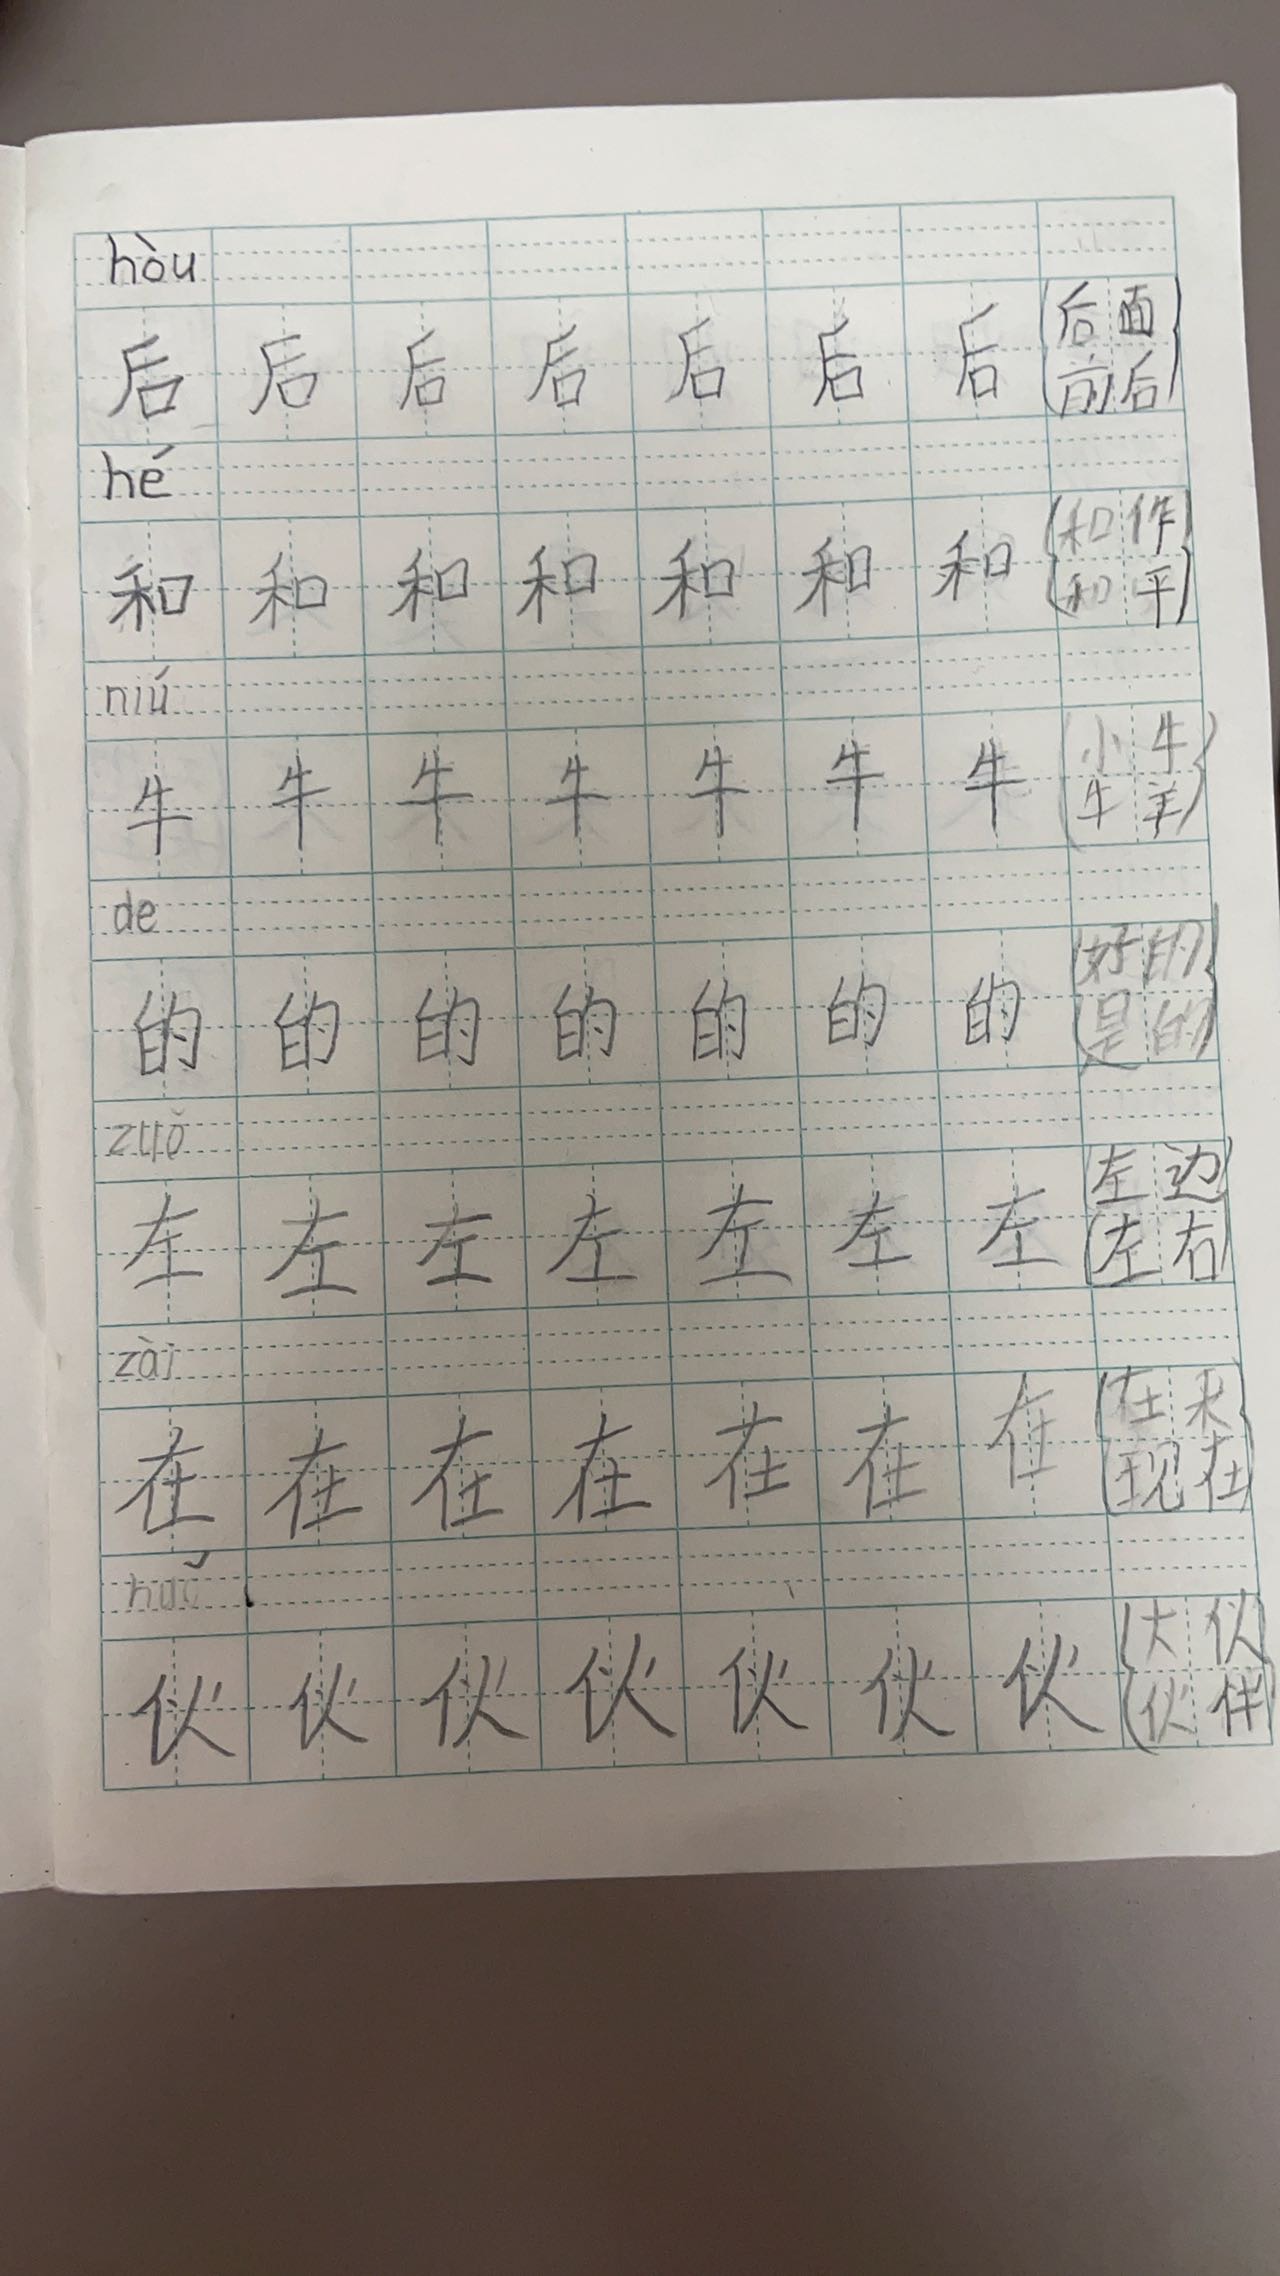 hòu
后 后 后 后 后 后 后 (后面
前后)
hé
和 和 和 和 和 和 和 (和作)
(和平)
niú
牛 牛 牛 牛 牛 牛 牛 (小牛
牛羊)
de
的 的 的 的 的 的 的 (好的
是的)
zuǒ
左 左 左 左 左 左 左 (左边)
(左右)
zài
在 在 在 在 在 在 在 (在
现在)
huǒ
伙 伙 伙 伙 伙 伙 伙 (大伙
伙伴)